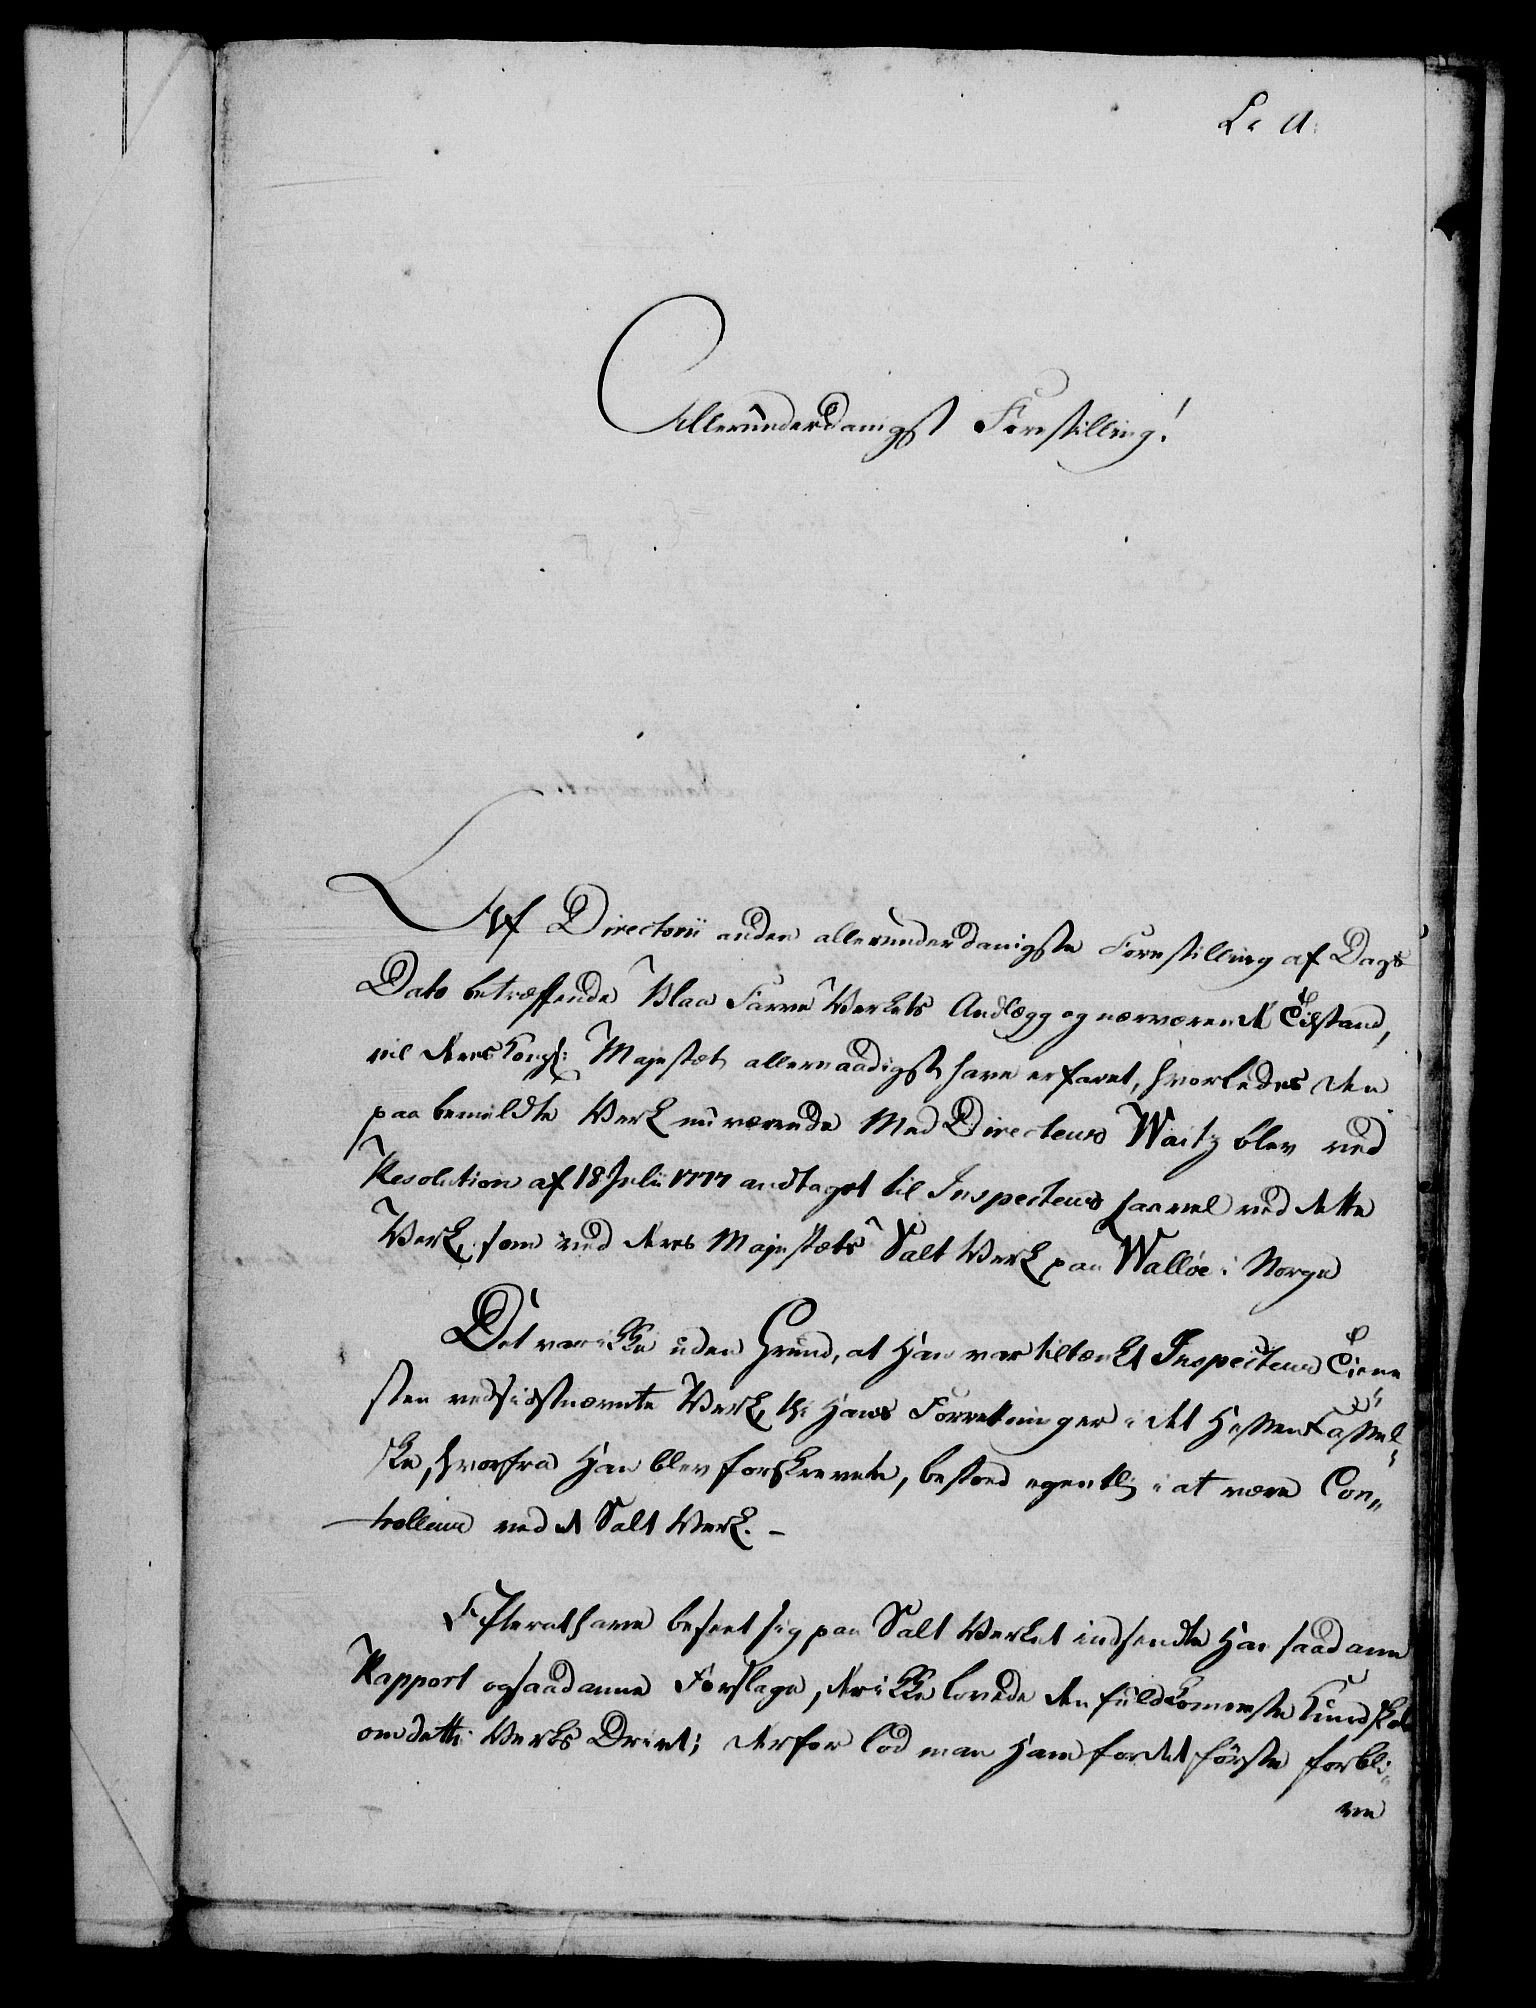 L. A.
Allerunderdanigst Forestilling!
Af Directorii anden allerunderdanigste Forestilling af Dags
Dato betræffende Blaa Farve Verkets Andlægg og nærværende Tilstand,
vil Deres Kongl: Majestæt allernaadigst have erfaret, hvorledes den
paa bemeldte Verk nuværende Med Directeur Waitz blev ved
Resolution af 18 Julii 1777 andtaget til Inspecteur saavel ved dette
Verk, som ved Deres Majestæts Salt Verk paa Walløe i Norge
Det var ikke uden Grund, at Han var tiltænkt Inspecteur Tiene
sten ved sidstnævnte Verk, thi Hans Forretninger i det Hessen Cassel-
ske, hvorfra Han blev forskreven, bestoed egentlig i at være Con„
trolleur ved et Salt Verk. –
Efter at have beseet sig paa Salt Verket indsendte Han saadann
Rapport og saadanne Forslage, der ikke lovede den fuldkomneste Kundskab
om dette Verks Drivt; derfor lod man Ham for det første forbli„
ve